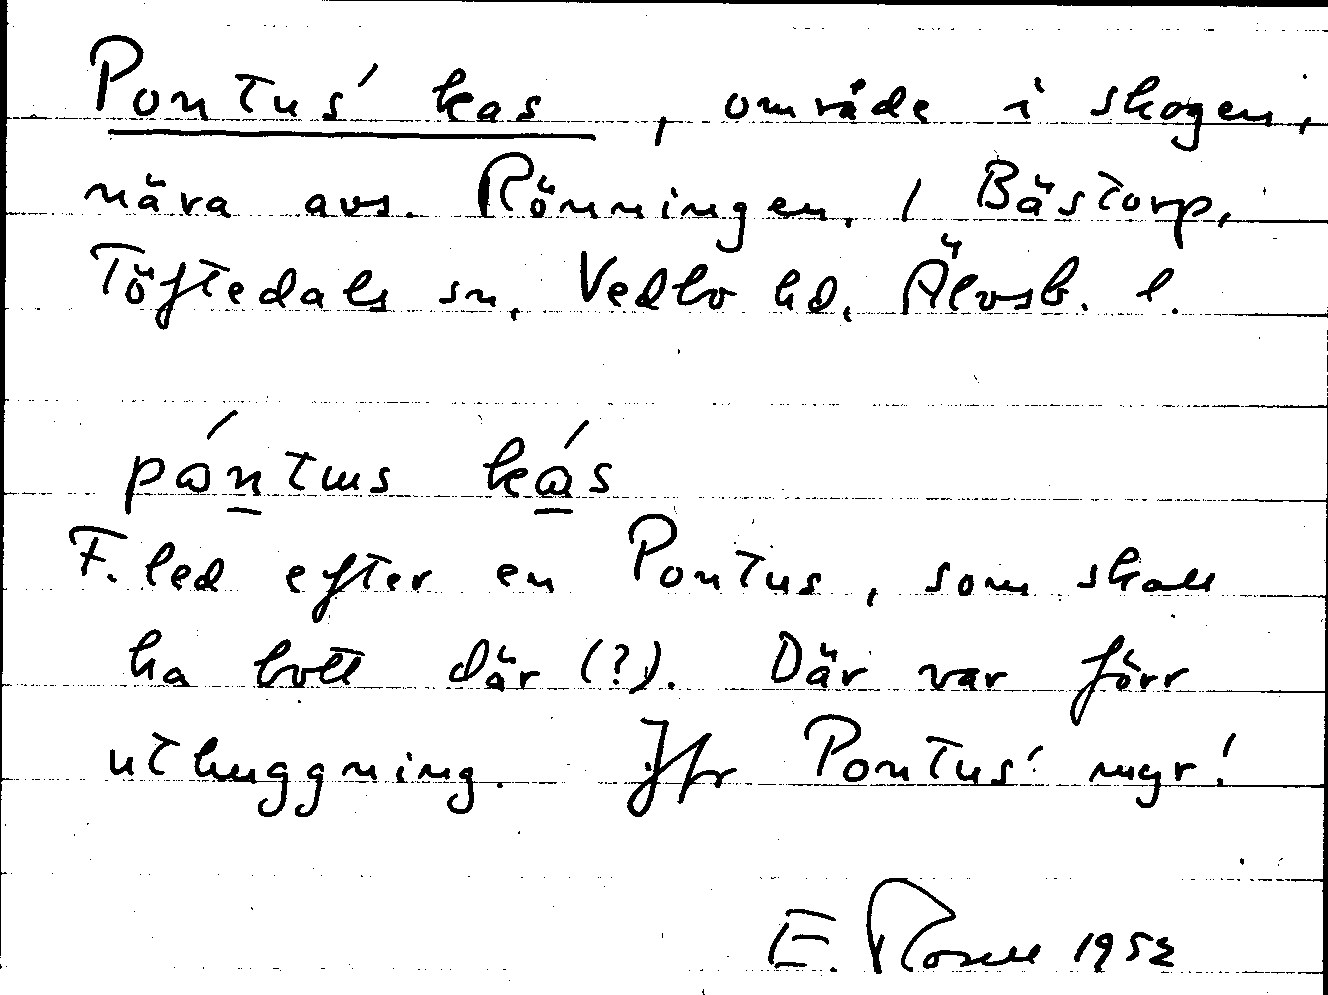 Pontus' kas, område i skogen,
nära avs. Rönningen, / Bästorp,
Töftedals sn, Vedbo hd, Älvsb. l.
pɷ́n̲tɯs kɑ̲́s
F. led efter en Pontus, som skall
ha bott där (?). Där var förr
uthuggning. Jfr Pontus' myr!
E. Rosell 1952